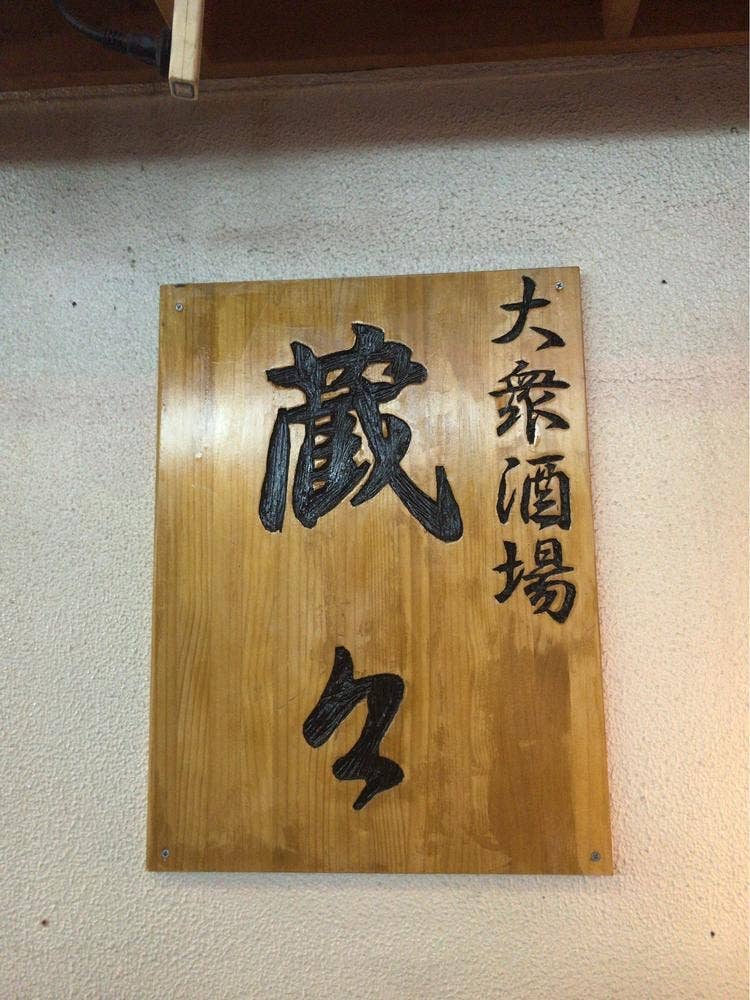 大衆酒場
蔵々